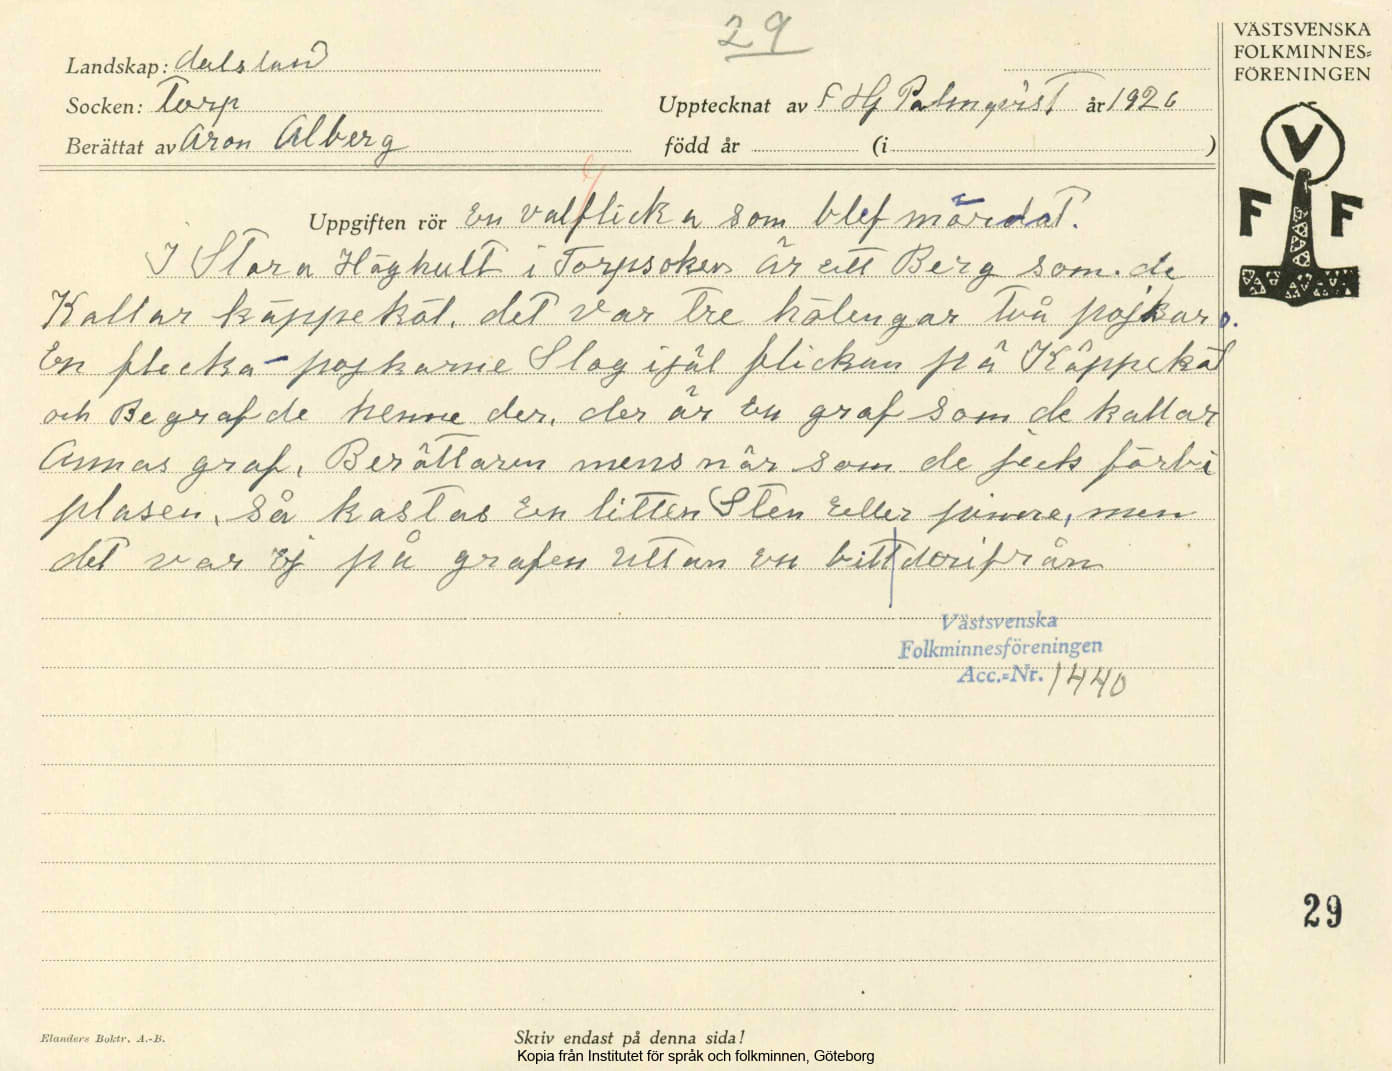 29
VÄSTSVENSKA
FOLKMINNES=
FÖRENINGEN
Landskap: dalsland
Socken: Torp
Upptecknat av F Hj Palmqvist år 1926
Berättat av Aron Alberg
född år (i )
V
F F
Uppgiften rör En valflicka som blef mördat.
I Stora Höghult i Torpsoken är ett Berg som de
Kallar käppekål. det var tre hölengar två pojkar o.
En flecka - pojkarne Slog ijäl flickan på Käppekål
och Begrafde henne der. der är En graf som de kallar
Annas graf. Berättaren mens när som de jeck förbi
plasen. så kastas En litten Sten Eller pinne, men
det var Ej på grafen uttan En bitt derifrån
Västsvenska
Folkminnesföreningen
Acc.=Nr. 1440
29
Elanders Boktr. A.-B.
Skriv endast på denna sida!
Kopia från Institutet för språk och folkminnen, Göteborg